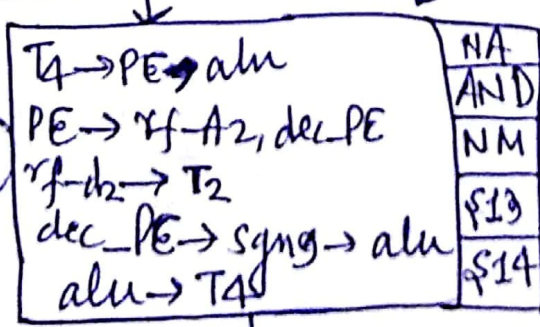 T4→PE→alu
PE→rf-A2, dec_PE
rf-d2→T2
dec_PE→sgn9→alu
alu→T4
NA
AND
NM
S13
S14